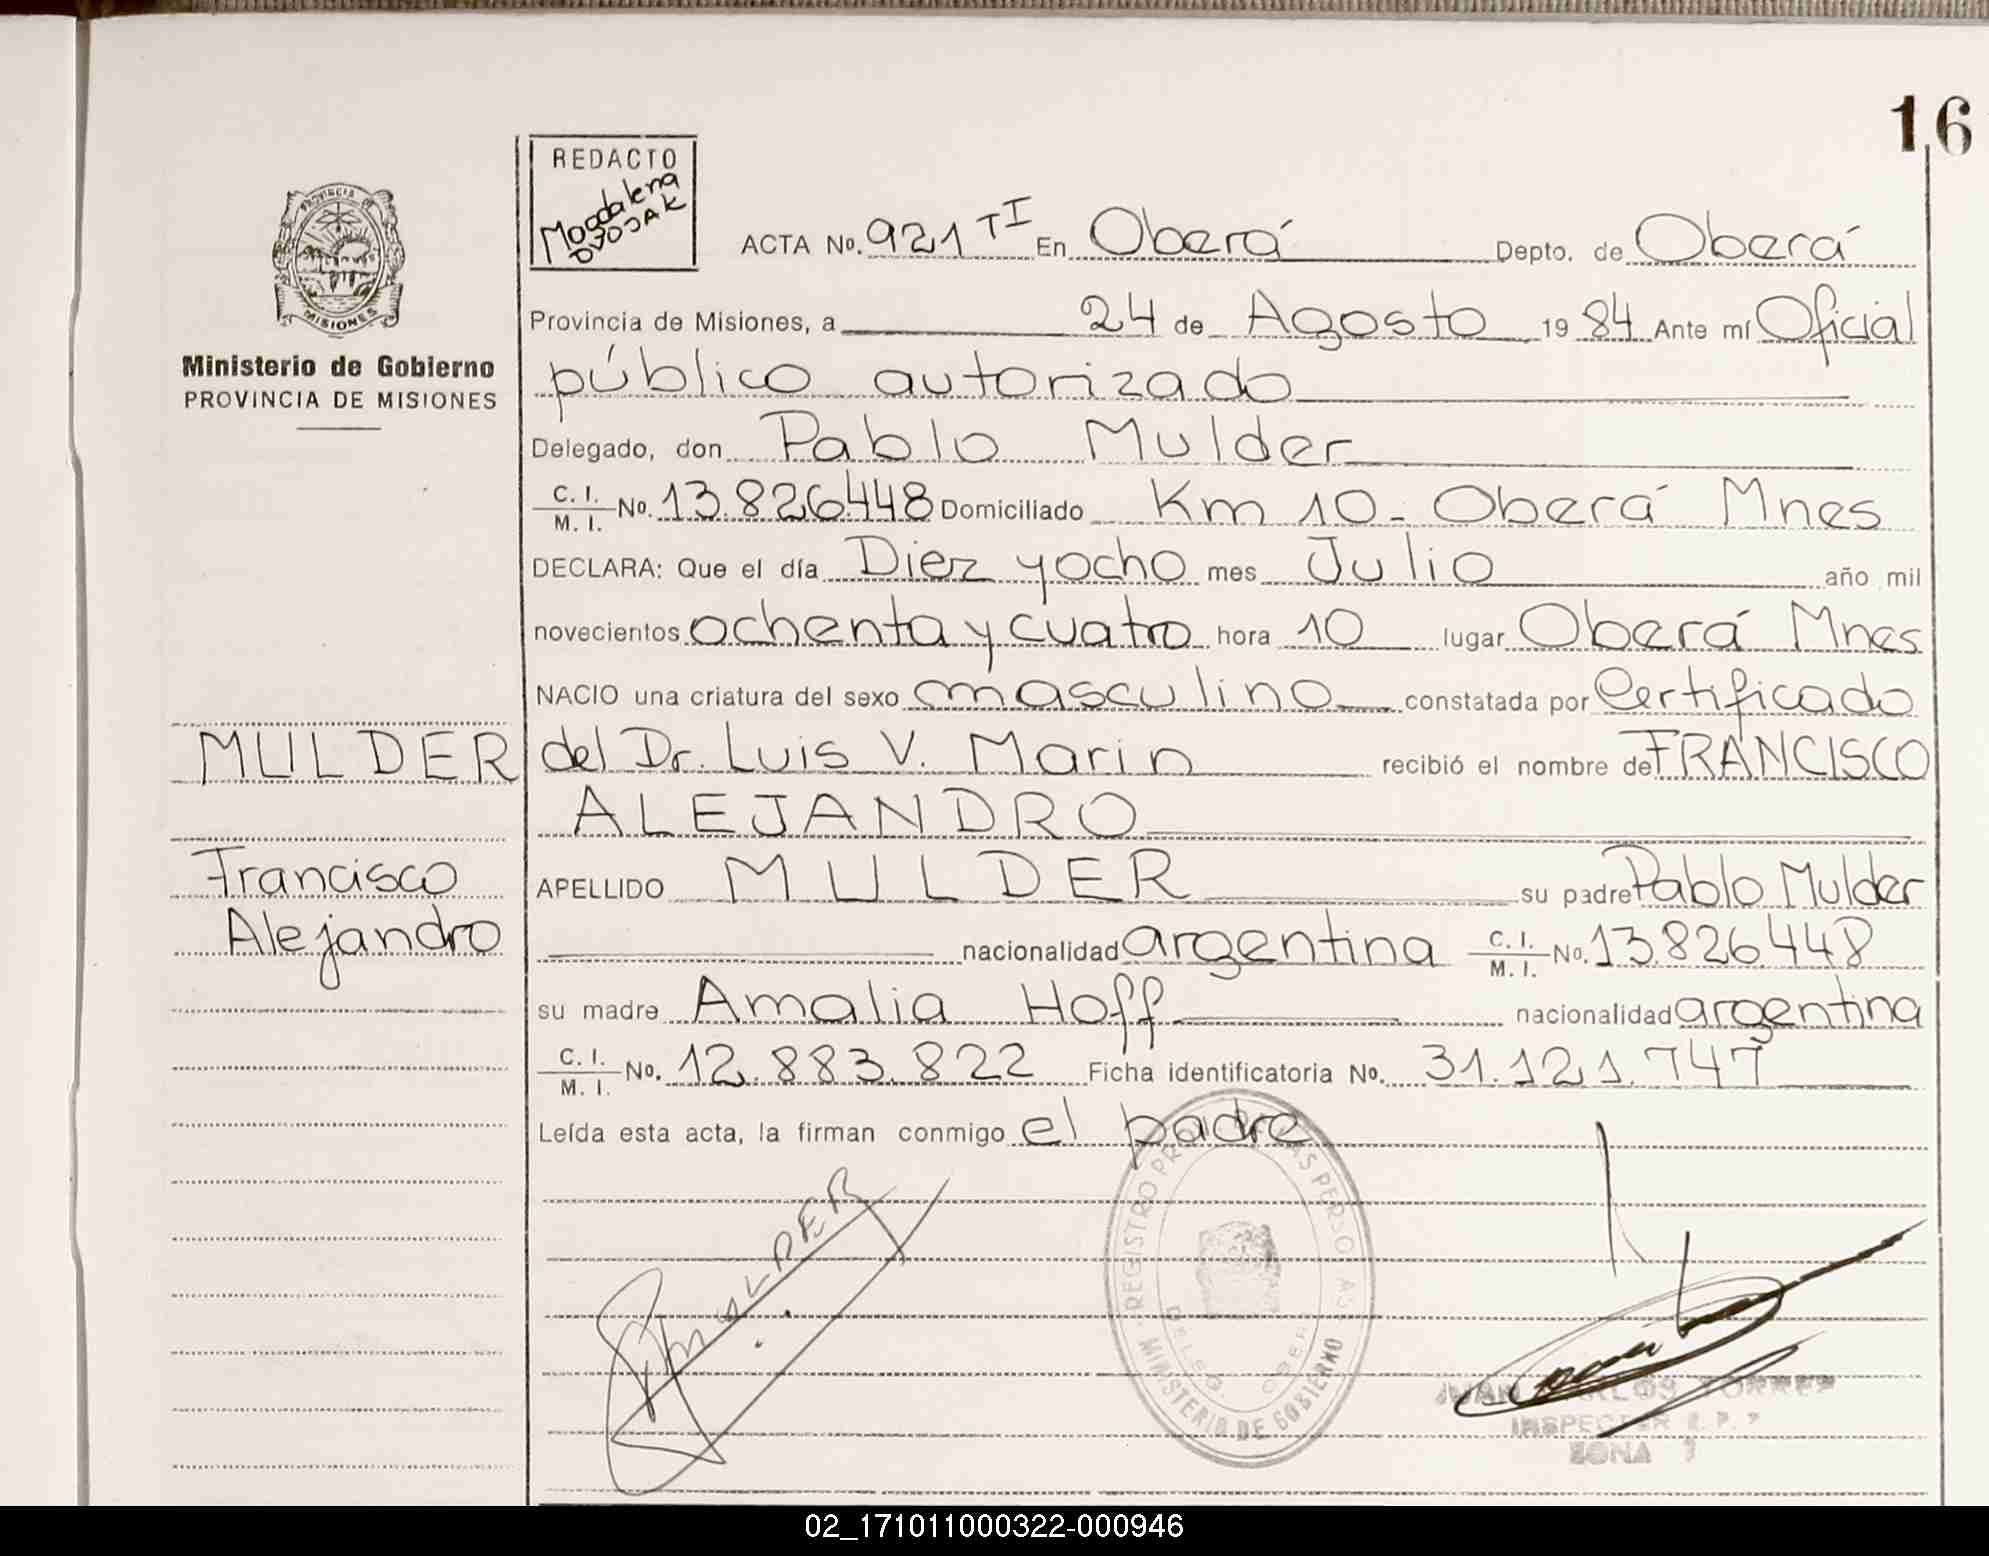 16
REDACTO
Magdalena
DJOJAK
PROVINCIA DE
MISIONES
Ministerio de Gobierno
PROVINCIA DE MISIONES
ACTA No. 921 TI En Oberá Depto. de Oberá
Provincia de Misiones, a 24 de Agosto 19 84 Ante mí Oficial
público autorizado
Delegado, don Pablo Mulder
C. I. / M. I. No. 13.826.448 Domiciliado Km 10 - Oberá Mnes
DECLARA: Que el día Diez y ocho mes Julio año mil
novecientos ochenta y cuatro hora 10 lugar Oberá Mnes
NACIO una criatura del sexo masculino constatada por Certificado
MULDER
del Dr. Luis V. Marin recibió el nombre de FRANCISCO
ALEJANDRO
Francisco
Alejandro
APELLIDO MULDER su padre Pablo Mulder
nacionalidad argentina C. I. / M. I. No. 13.826.448
su madre Amalia Hoff nacionalidad argentina
C. I. / M. I. No. 12.883.822 Ficha identificatoria No. 31.121.747
Leída esta acta, la firman conmigo el padre
MULDER
REGISTRO PROV. DE LAS PERSONAS
MINISTERIO DE GOBIERNO
JUAN CARLOS TORRES
INSPECTOR R. P. P.
ZONA 1
02_171011000322-000946